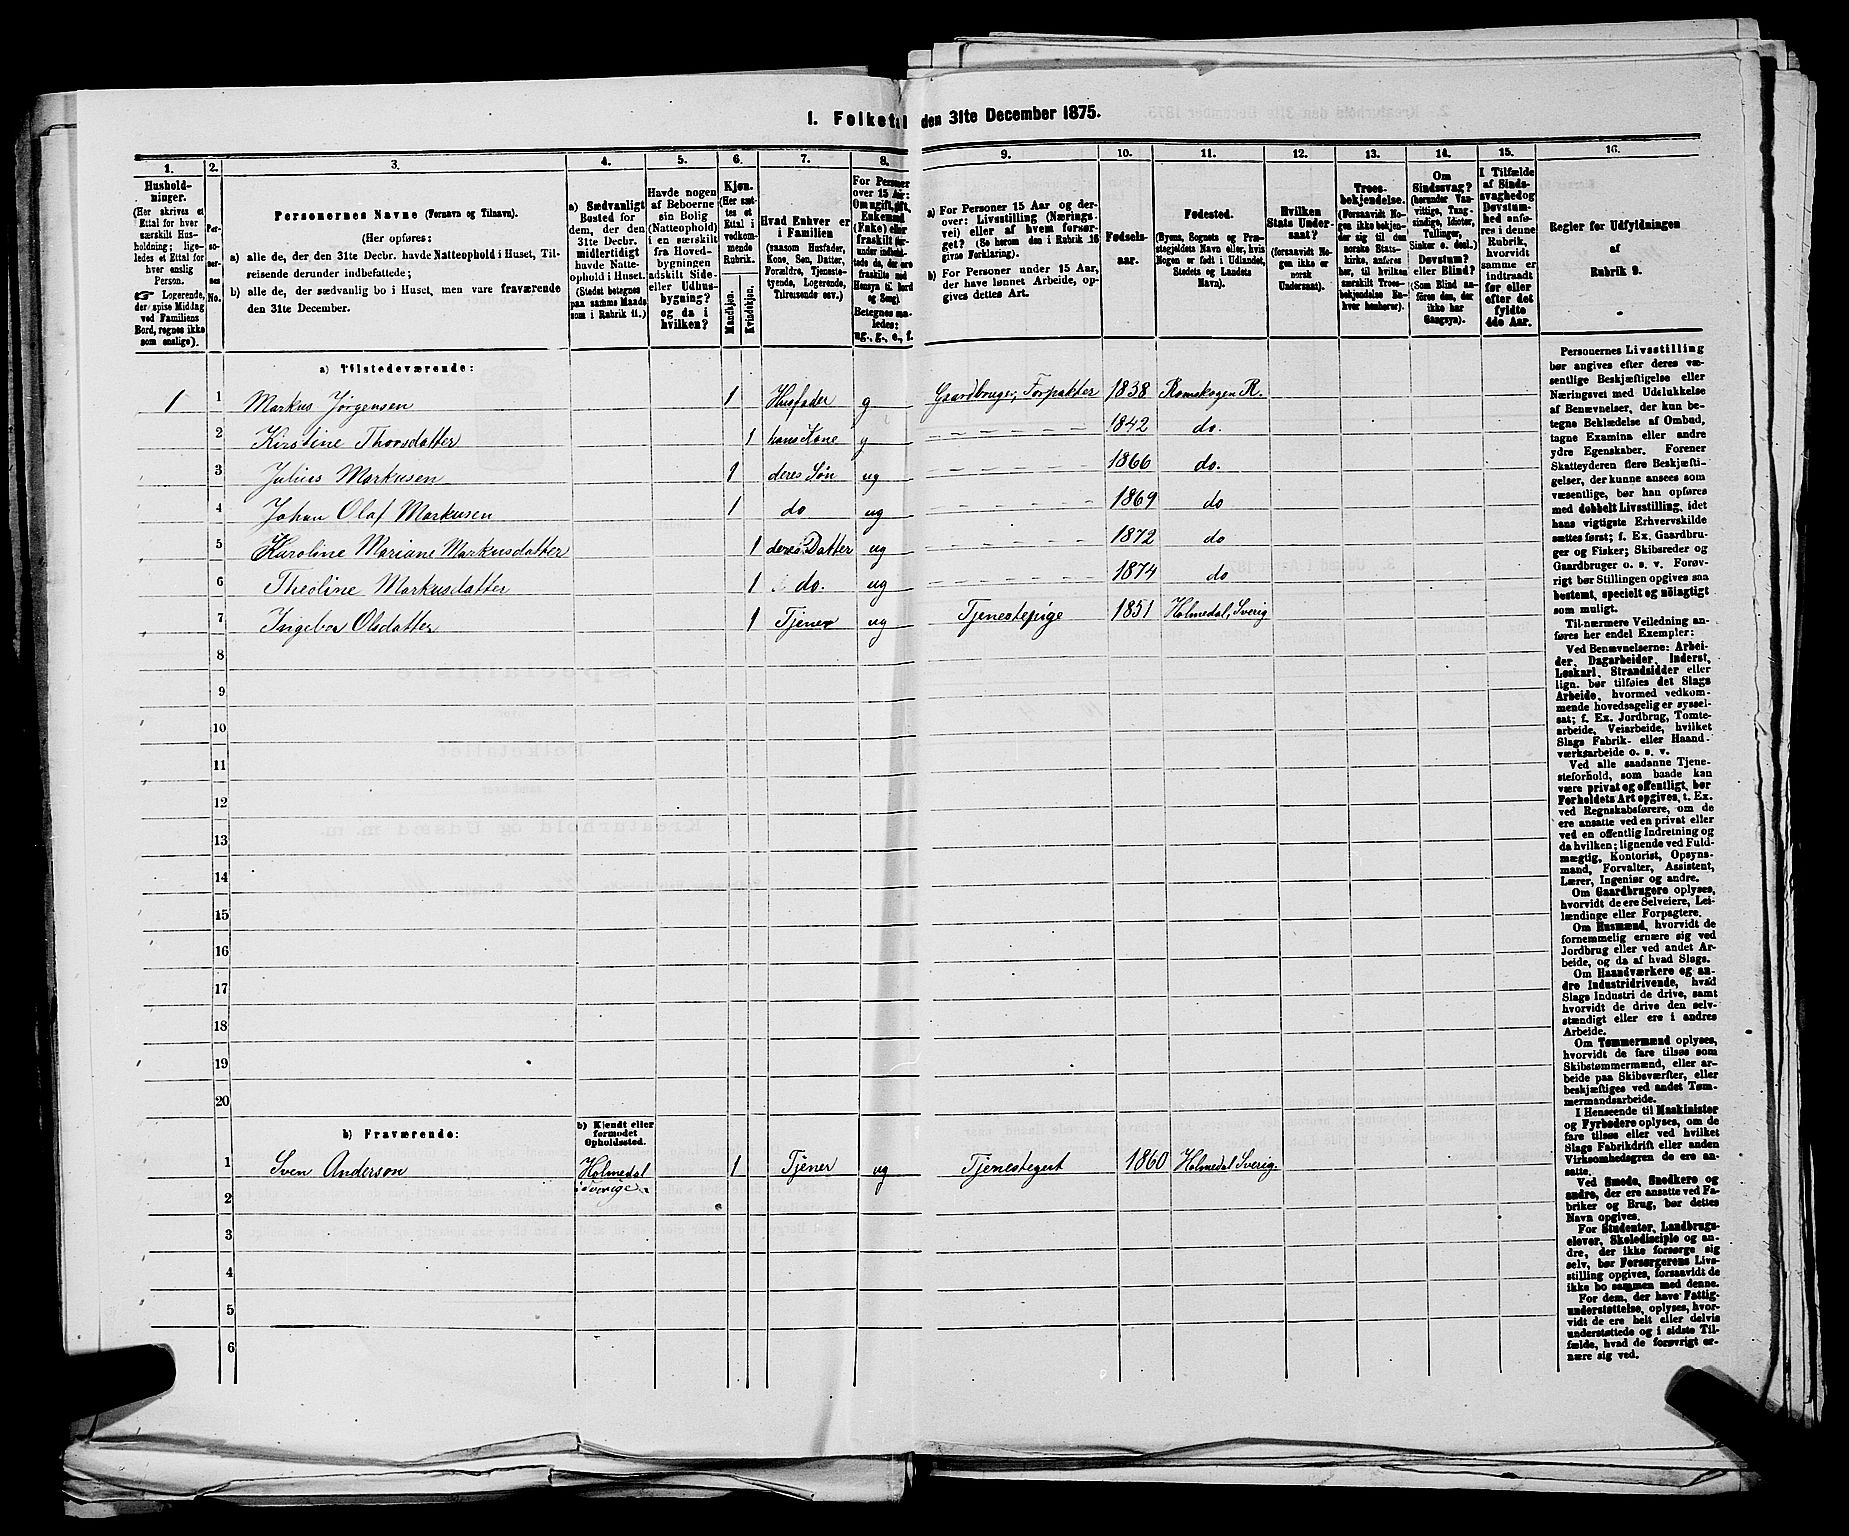 1. Folketal den 31te December 1875.
1. 2. 3. 4. 5. 6. 7. 8. 9. 10. 11. 12. 13. 14. 15. 16.
Husholdninger.
(Her skrives et Ettal for hver særskilt Husholdning; ligeledes et Ettal for hver enslig Person.
☞ Logerende, der spise Middag ved Familiens Bord, regnes ikke som enslige).
Personernes No.
Personernes Navne (Fornavn og Tilnavn).
(Her opføres:
a) alle de, der den 31te Decbr. havde Natteophold i Huset, Tilreisende derunder indbefattede;
b) alle de, der sædvanlig bo i Huset, men vare fraværende den 31te December.
a) Sædvanligt Bosted for dem, der den 31te Decbr. midlertidigt havde Natteophold i Huset. (Stedet betegnes paa samme Maade som i Rubrik 11.)
Havde nogen af Beboerne sin Bolig (Natteophold) i en særskilt fra Hovedbygningen adskilt Side- eller Udhusbygning? og da i hvilken?
Kjøn. (Her sættes et Ettal i vedkommende Rubrik.
Mandkjøn. Kvindekjøn.
Hvad Enhver er i Familien (saasom Husfader, Kone, Søn, Datter, Forældre, Tjenestetyende, Logerende, Tilreisende osv.)
a) For Personer 15 Aar og derover: Livsstilling (Næringsvei) eller af hvem forsørget? (Se herom den i Rubrik 16 givne Forklaring).
b) For Personer under 15 Aar, der have lønnet Arbeide, opgives dettes Art.
Fødselsaar.
Fødested.
(Byens, Sognets og Præstegjeldets Navn eller, hvis Nogen er født i Udlandet, Stedets og Landets Navn).
Hvilken Stats Undersaat?
(forsaavidt Nogen ikke er norsk Undersaat).
Troesbekjendelse.
(Forsaavidt Nogen ikke bekjender sig til den norske Statskirke, anføres her, til hvilken særskilt Troesbekjendelse Enhver henhører).
Om Sindssvag? (herunder Vanvittige, Tungsindige, Idioter, Tullinger, Sinker o. desl.)
Døvstum? eller Blind? (Som Blind anføres den, der ikke har Gangsyn).
I Tilfælde af Sindssvaghed og Døvstumhed anføres i denne Rubrik, hvorvidt samme er indtraadt før eller efter det fyldte 4de Aar.
Regler for Udfyldningen
af
Rubrik 9.
a) Tilstedeværende:
1 1 Markus Jörgensen 1 Husfader g Gaardbruger, Forpakter 1838 Römskogen R.
2 Kirstine Thorsdatter 1 hans Kone g 1842 do.
3 Julius Markusen 1 deres Søn ug 1866 do.
4 Johan Olaf Markusen 1 do ug 1869 do
5 Karoline Mariane Markusdatter 1 deres Datter ug 1872 do
6 Theoline Markusdatter 1 do. ug 1874 do
7 Ingebor Olsdatter 1 Tjener ug Tjenestepige 1851 Holmedal, Sverig
8
9
10
11
12
13
14
15
16
17
18
19
20
b) Fraværende:
b) Kjendt eller formodet Opholdssted.
1 Sven Anderson Holmedal i Sverige 1 Tjener ug Tjenestegut 1860 Holmedal Sverig.
2
3
4
5
6
Personernes Livsstilling
bør angives efter deres væsentlige Beskjæftigelse eller
Næringsvei med Udelukkelse
af Benævnelser, der kun betegne Beklædelse af Ombud,
tagne Examina eller andre
ydre Egenskaber. Forener
Skatteyderen flere Beskjæftigelser, der kunne ansees som
væsentlige, bør han opføres
med dobbelt Livsstilling, idet
hans vigtigste Erhvervskilde
sættes først; f. Ex. Gaardbruger og Fisker; Skibsreder og
Gaardbruger o. s. v. Forøvrigt bør Stillingen opgives saa
bestemt, specielt og nøiagtigt
som muligt.
Til nærmere Veiledning anføres her endel Exempler:
Ved Benævnelserne: Arbeider, Dagarbeider, Inderst,
Løskarl, Strandsidder eller
lign. bør tilføies det Slags
Arbeide, hvormed vedkommende hovedsagelig er sysselsat; f. Ex. Jordbrug, Tomtearbeide, Veiarbeide, hvilket
Slags Fabrik- eller Haandværksarbeide o. s. v.
Ved alle saadanne Tjenesteforhold, som baade kan
være privat og offentligt, bør
Forholdets Art opgives, t. Ex.
ved Regnskabsførere, om de
ere ansatte ved en privat eller
ved en offentlig Indretning og
da hvilken; lignende ved Fuldmægtig, Kontorist, Opsynsmand, Forvalter, Assistent,
Lærer, Ingeniør og andre.
Om Gaardbrugere oplyses,
hvorvidt de ere Selveiere, Leilændinge eller Forpagtere.
Om Husmænd, hvorvidt de
fornemmelig ernære sig ved
Jordbrug eller ved andet Arbeide, og da af hvad Slags.
Om Haandværkere og andre Industridrivende, hvad
Slags Industri de drive, samt
hvorvidt de drive den selvstændigt eller ere i andres
Arbeide.
Om Tømmermænd oplyses,
hvorvidt de fare tilsøs som
Skibstømmermænd, eller arbeide paa Skibsværfter, eller
beskjæftiges ved andet Tømmermandsarbeide.
I Henseende til Maskinister
og Fyrbødere oplyses, om de
fare tilsøs eller ved hvilket
Slags Fabrikdrift eller anden
Virksomhedsgren de ere ansatte.
Ved Smede, Snedkere og
andre, der ere ansatte ved Fabriker og Brug, bør dettes
Navn opgives.
For Studenter, Landbrugselever, Skoledisciple og andre, der ikke forsørge sig
selv, bør Forsørgerens Livsstilling opgives, forsaavidt de
ikke bo sammen med denne.
For dem, der have Fattigunderstøttelse, oplyses, hvorvidt de ere helt eller delvis
understøttede og i sidste Tilfælde, hvad de forøvrigt ernære sig ved.